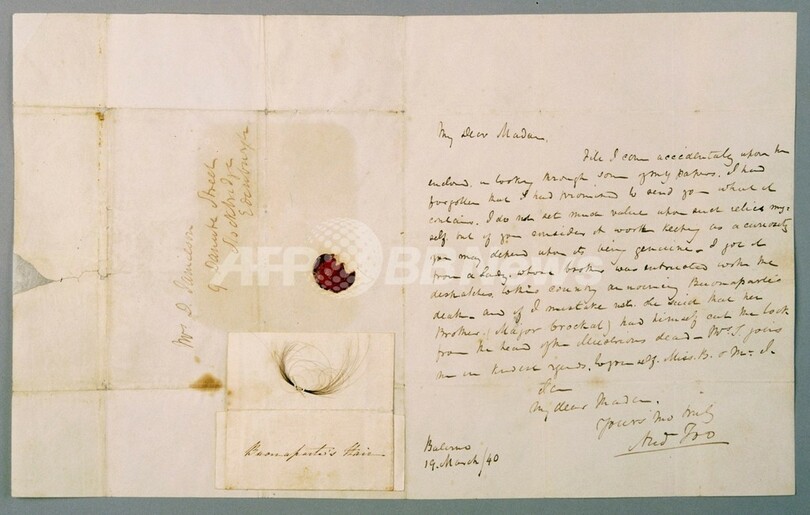 Mrs D. Jamieson
9 Danube Street
Stockbridge
Edinburgh
AFP BB NEWS
Buonaparte's Hair
My Dear Madam,
Till I came accidentally upon the
enclosed, in looking through some of my papers, I had
forgotten that I had promised to send you what it
contains. I do not set much value upon such relics my-
self but if you consider it worth keeping as a curiosity
you may depend upon its being genuine. I got it
from a Lady, whose brother was intrusted with the
despatches to this country announcing Buonaparte's
death - and if I mistake not she said that her
Brother, (Major Crockat) had himself cut the lock
from the head of the illustrious dead - Mrs. T. joins
me in kindest regards, to yourself, Miss. B. & Mr. J.
I am
My dear Madam,
Yours Mo truly
And
Balerno
19. March/40